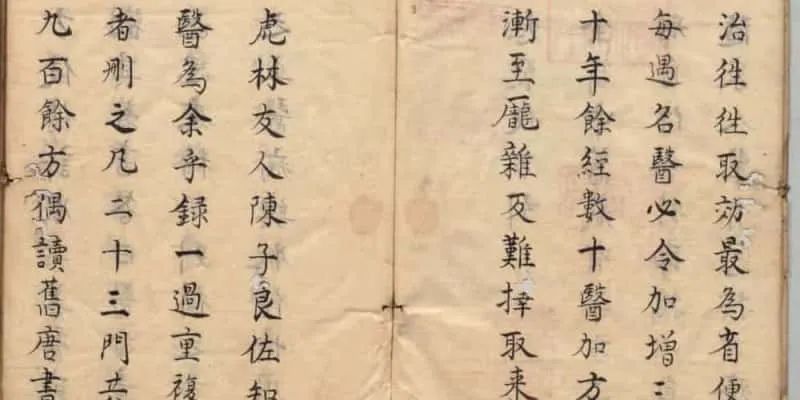 治徃徃取効最為省便
每遇名醫必令加增
十年餘經數十醫加方
漸至龎雜反難擇取来
虎林友人陳子良佐知
醫為余手録一過重複
者刪之凡二十三門共
九百餘方偶讀舊唐書